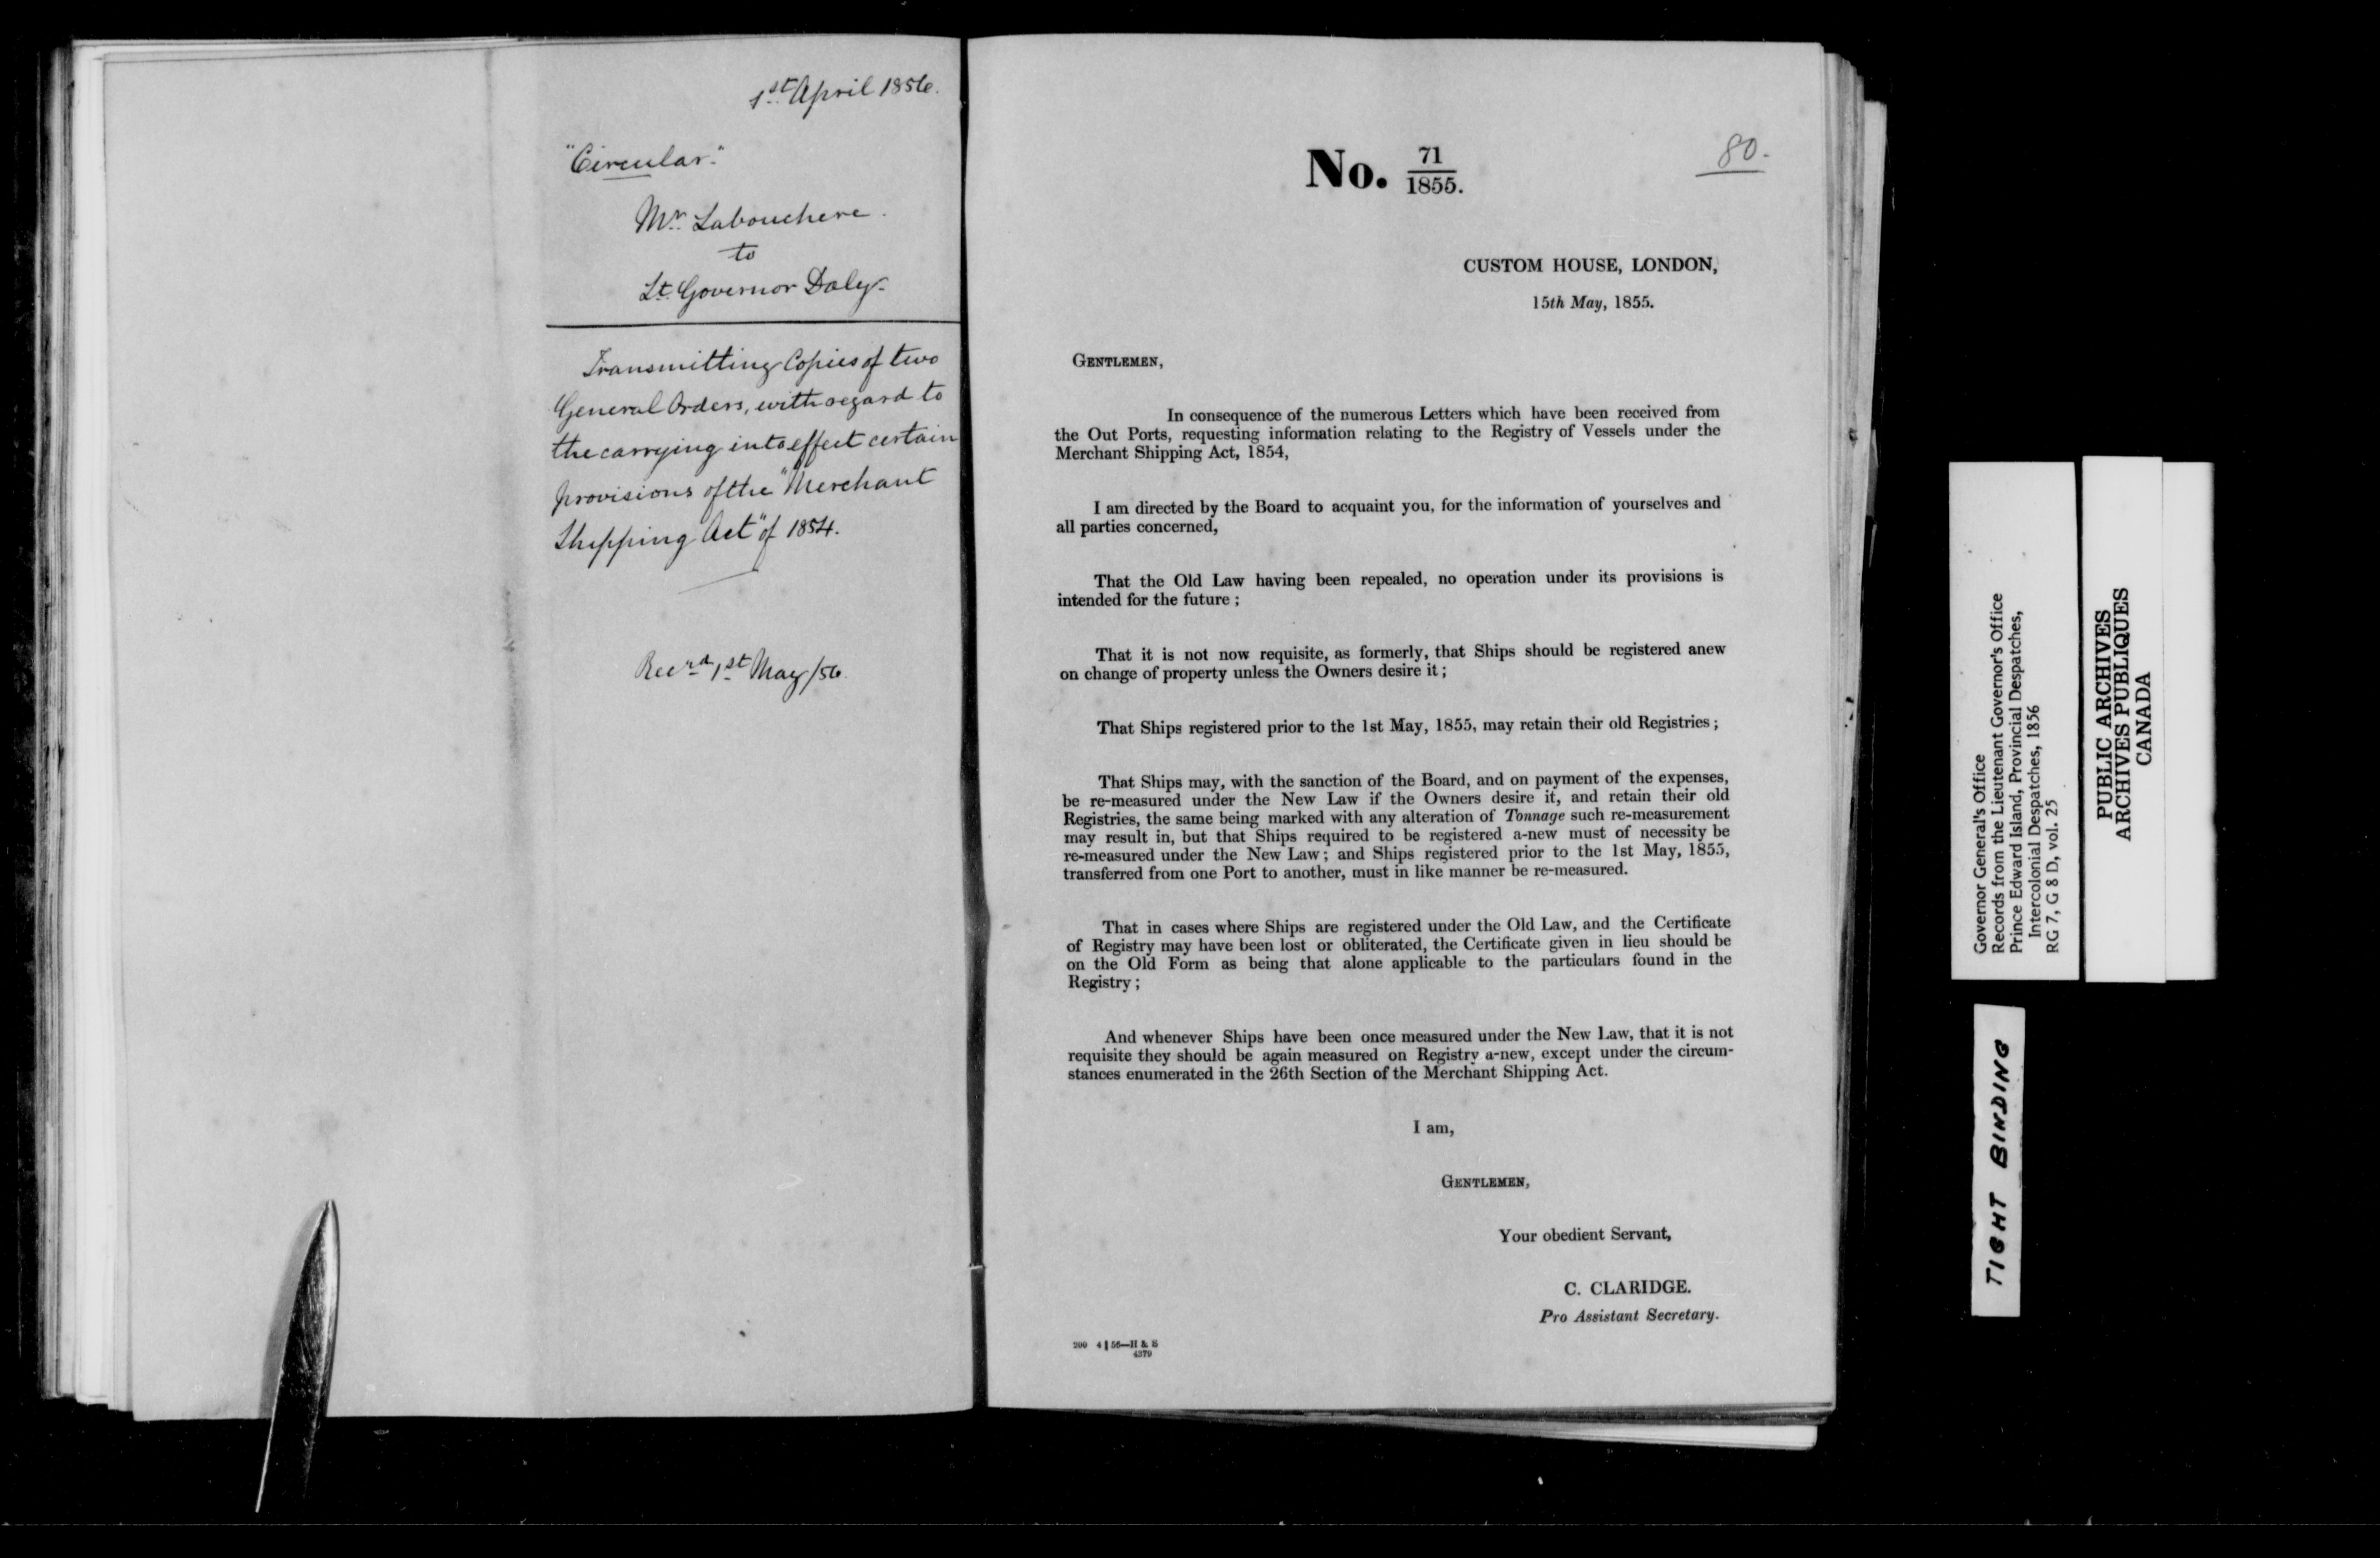 1st April 1856.
"Circular."
Mr. Labouchere.
to
Lt. Governor Daly.
Transmitting Copies of two
General Orders, with regard to
the carrying into effect certain
provisions of the "Merchant
Shipping Act" of 1854.
Recvd 1st May/56.
80.
No. 71/1855.
CUSTOM HOUSE, LONDON,
15th May, 1855.
GENTLEMEN,
In consequence of the numerous Letters which have been received from
the Out Ports, requesting information relating to the Registry of Vessels under the
Merchant Shipping Act, 1854,
I am directed by the Board to acquaint you, for the information of yourselves and
all parties concerned,
That the Old Law having been repealed, no operation under its provisions is
intended for the future ;
That it is not now requisite, as formerly, that Ships should be registered anew
on change of property unless the Owners desire it ;
That Ships registered prior to the 1st May, 1855, may retain their old Registries ;
That Ships may, with the sanction of the Board, and on payment of the expenses,
be re-measured under the New Law if the Owners desire it, and retain their old
Registries, the same being marked with any alteration of Tonnage such re-measurement
may result in, but that Ships required to be registered a-new must of necessity be
re-measured under the New Law ; and Ships registered prior to the 1st May, 1855,
transferred from one Port to another, must in like manner be re-measured.
That in cases where Ships are registered under the Old Law, and the Certificate
of Registry may have been lost or obliterated, the Certificate given in lieu should be
on the Old Form as being that alone applicable to the particulars found in the
Registry ;
And whenever Ships have been once measured under the New Law, that it is not
requisite they should be again measured on Registry a-new, except under the circum-
stances enumerated in the 26th Section of the Merchant Shipping Act.
I am,
GENTLEMEN,
Your obedient Servant,
C. CLARIDGE.
Pro Assistant Secretary.
200 4 | 56—H & S
4379
Governor General's Office
Records from the Lieutenant Governor's Office
Prince Edward Island, Provincial Despatches,
Intercolonial Despatches, 1856
RG 7, G 8 D, vol. 25
PUBLIC ARCHIVES
ARCHIVES PUBLIQUES
CANADA
TIGHT BINDING